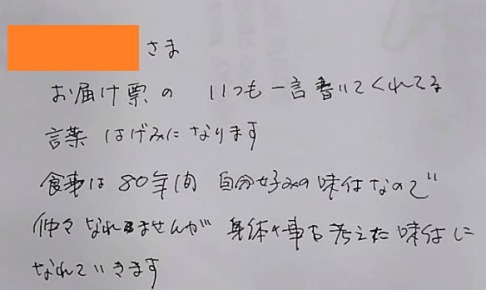 さま
お届け票の いつも一言書いてくれてる
言葉 はげみになります
食事は80年間 自分好みの味付なので
仲々 なれませんが 身体や事を考えた味付に
なれていきます